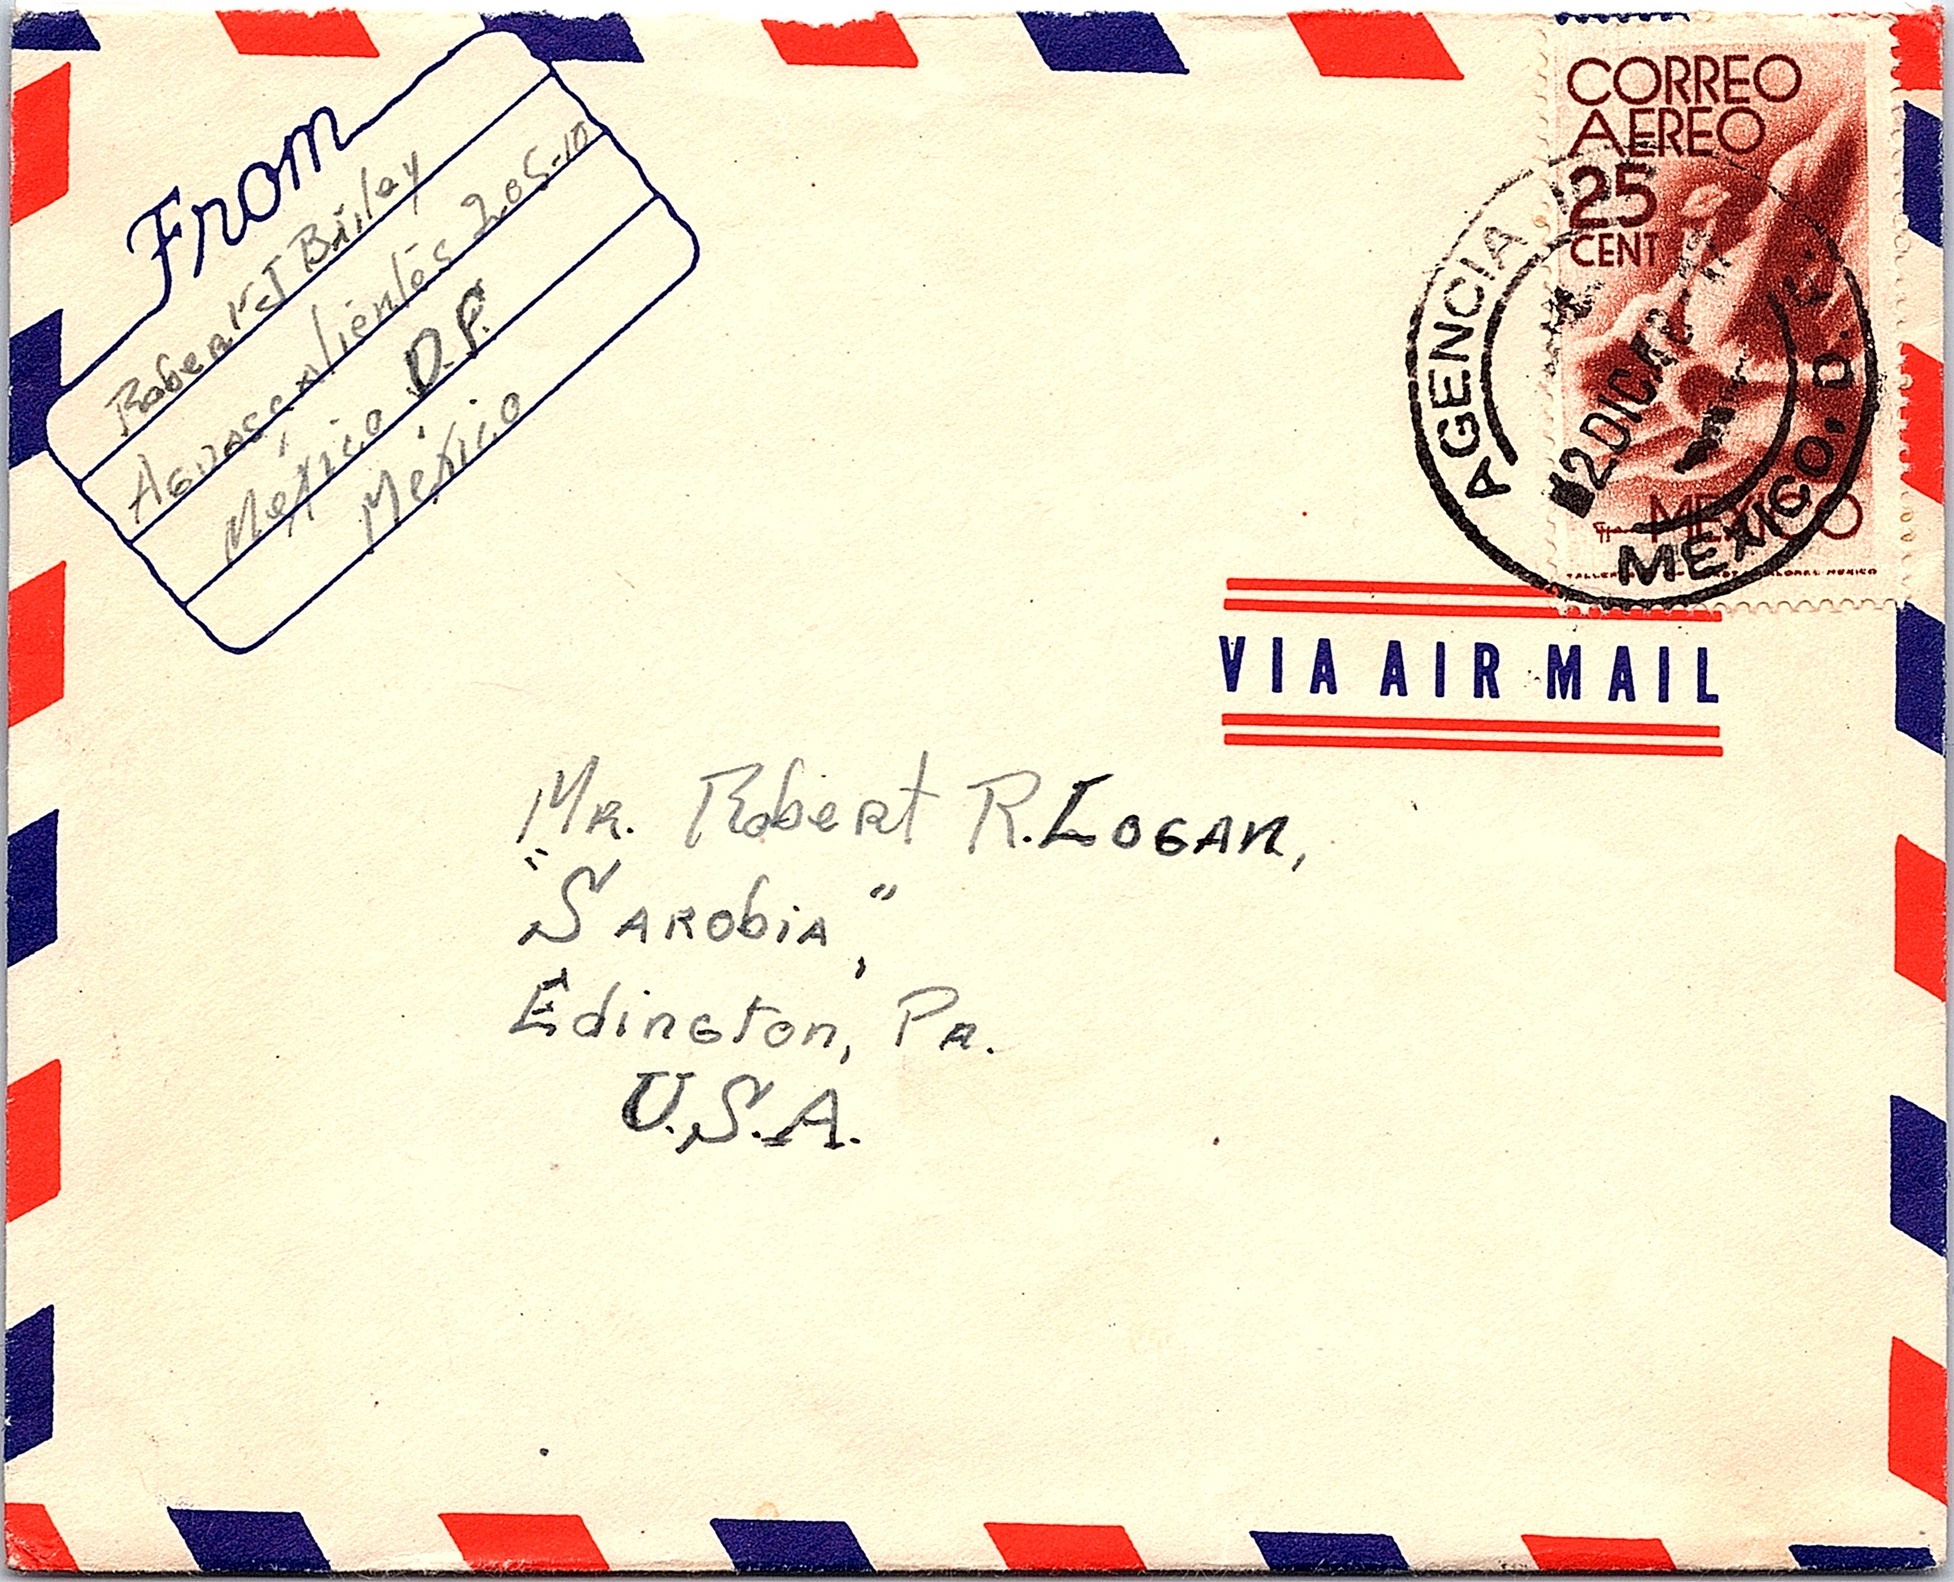 From
Robert J Bailey
Aguascalientés 205-10
México D.F.
México
CORREO
AEREO
25
CENT
MEXICO
AGENCIA
MEXICO, D. F.
VIA AIR MAIL
Mr. Robert R. Logan,
"Sarobia,"
Edington, Pa.
U.S.A.